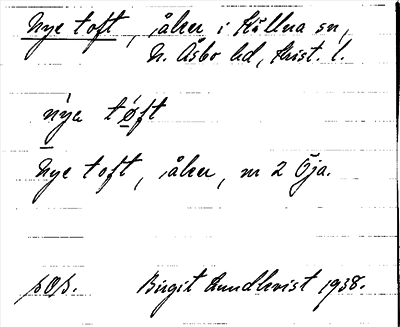 Nye toft, åker i Källna sn,
N. Åsbo hd, Krist. l.
nya tøft
Nye toft, åker, nr 2 Öja.
Birgit Lundkvist 1938.